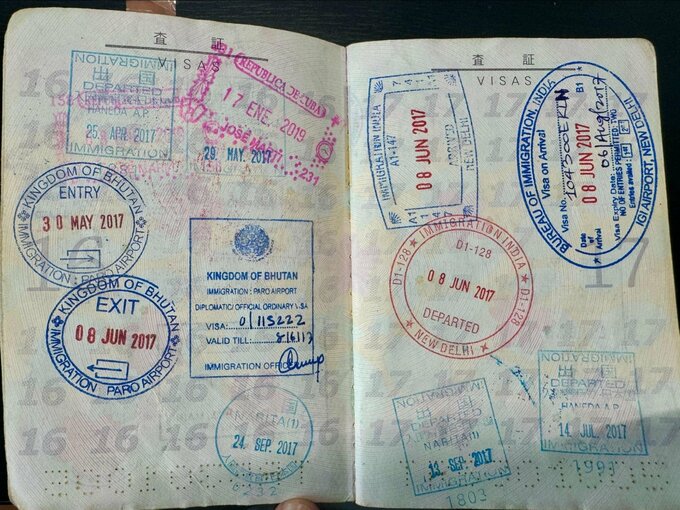 査 証
VISAS
出 国
DEPARTED
HANEDA A.P.
25. APR. 2017
IMMIGRATION
REPUBLICA DE CUBA
17 ENE. 2019
JOSE MARTI
231
29. MAY. 2017
KINGDOM OF BHUTAN
ENTRY
30 MAY 2017
IMMIGRATION : PARO AIRPORT
KINGDOM OF BHUTAN
EXIT
08 JUN 2017
IMMIGRATION PARO AIRPORT
KINGDOM OF BHUTAN
IMMIGRATION : PARO AIRPORT
DIPLOMATIC/OFFICIAL ORDINARY VISA
VISA: 0/115222
VALID TILL: 8/6/17
IMMIGRATION OFFICER
国
NARITA(1)
24. SEP. 2017
6232
16 16 16 16 16 16
査 証
VISAS
IMMIGRATION INDIA
A1-147
08 JUN 2017
ARRIVED
NEW DELHI
BUREAU OF IMMIGRATION, INDIA
Visa on Arrival B1
Visa No.
08 JUN 2017
Date of Arrival
Visa Expiry Date: 06/Aug/2017
NO OF ENTRIES PERMITTED: TWO
Entries availed: 1st 2nd
IGI AIRPORT, NEW DELHI
IMMIGRATION INDIA
D1-128
D1-128
D1-128
08 JUN 2017
DEPARTED
NEW DELHI
17
出 国
DEPARTED
NARITA(1)
13. SEP. 2017
IMMIGRATION
1803
出 国
DEPARTED
HANEDA A.P.
14. JUL. 2017
IMMIGRATION
1991